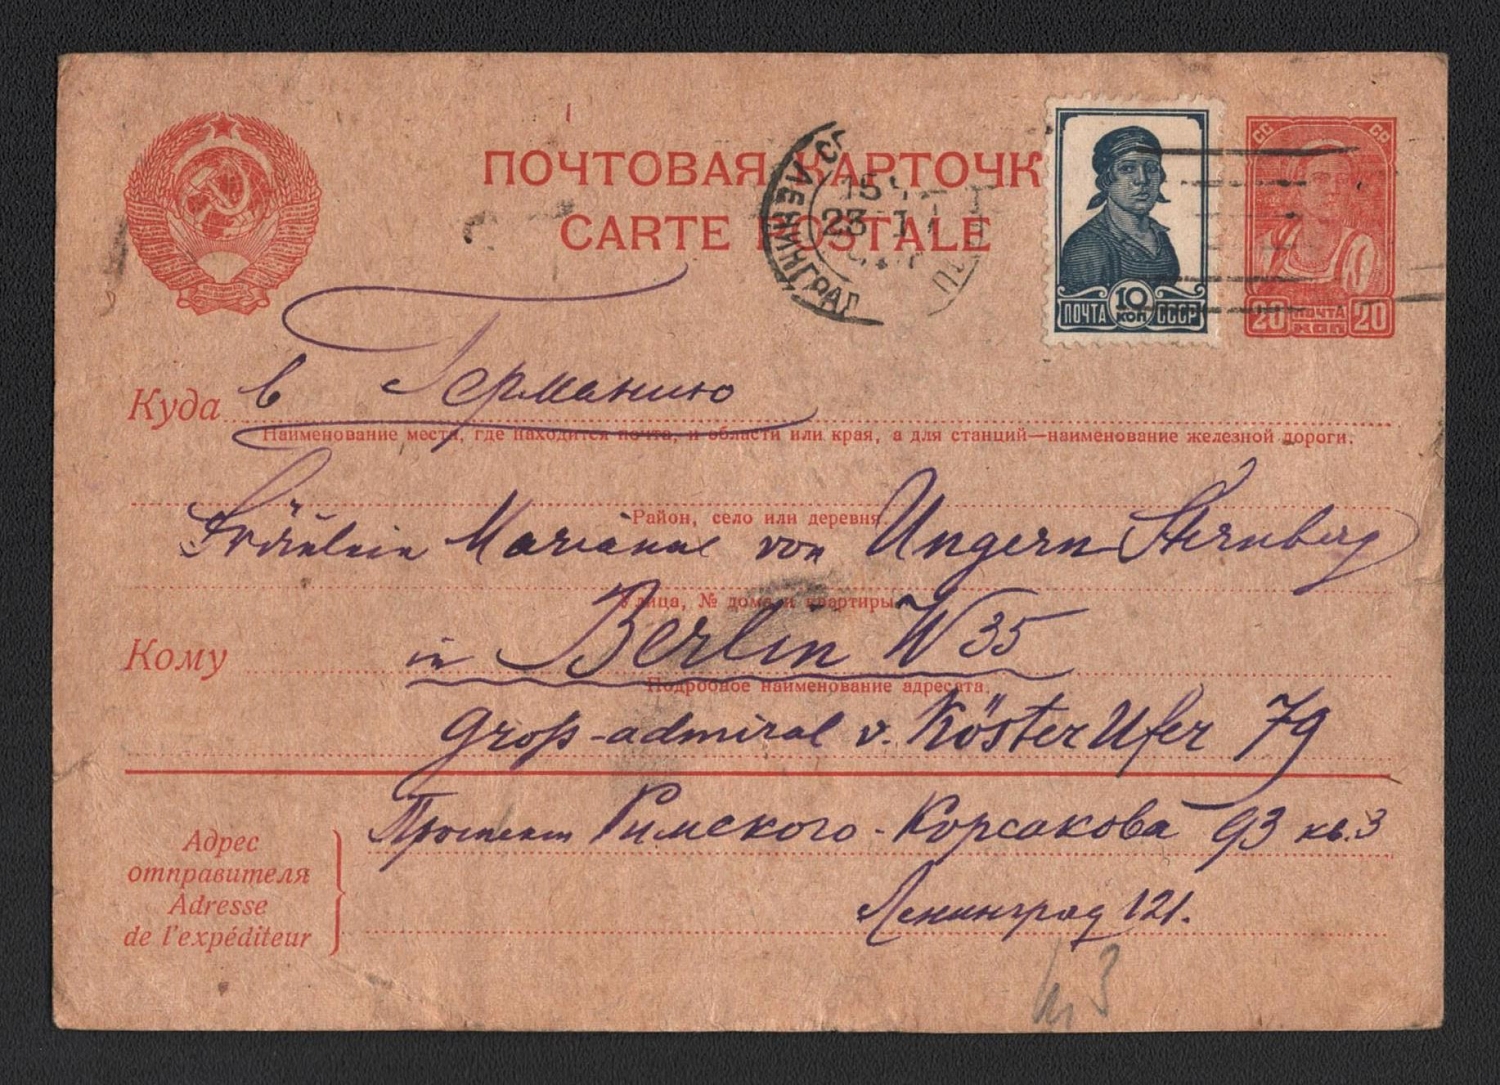 ПОЧТОВАЯ КАРТОЧК
CARTE POSTALE
ЛЕНИНГРАД
15
23 1
ПОЧТА 10 КОП СССР
СС СР
20 ПОЧТА КОП 20
Куда в Германию
Наименование места, где находится почта, и области или края, а для станций—наименование железной дороги.
Район, село или деревня.
Fräulein Marianne von Ungern-Sternberg
Улица, № дома и квартиры
Кому in Berlin W 35
Подробное наименование адресата.
Groß-admiral v. Köster Ufer 79
Адрес отправителя
Adresse de l'expéditeur
Проспект Римского-Корсакова 93 кв. 3
Ленинград 121.